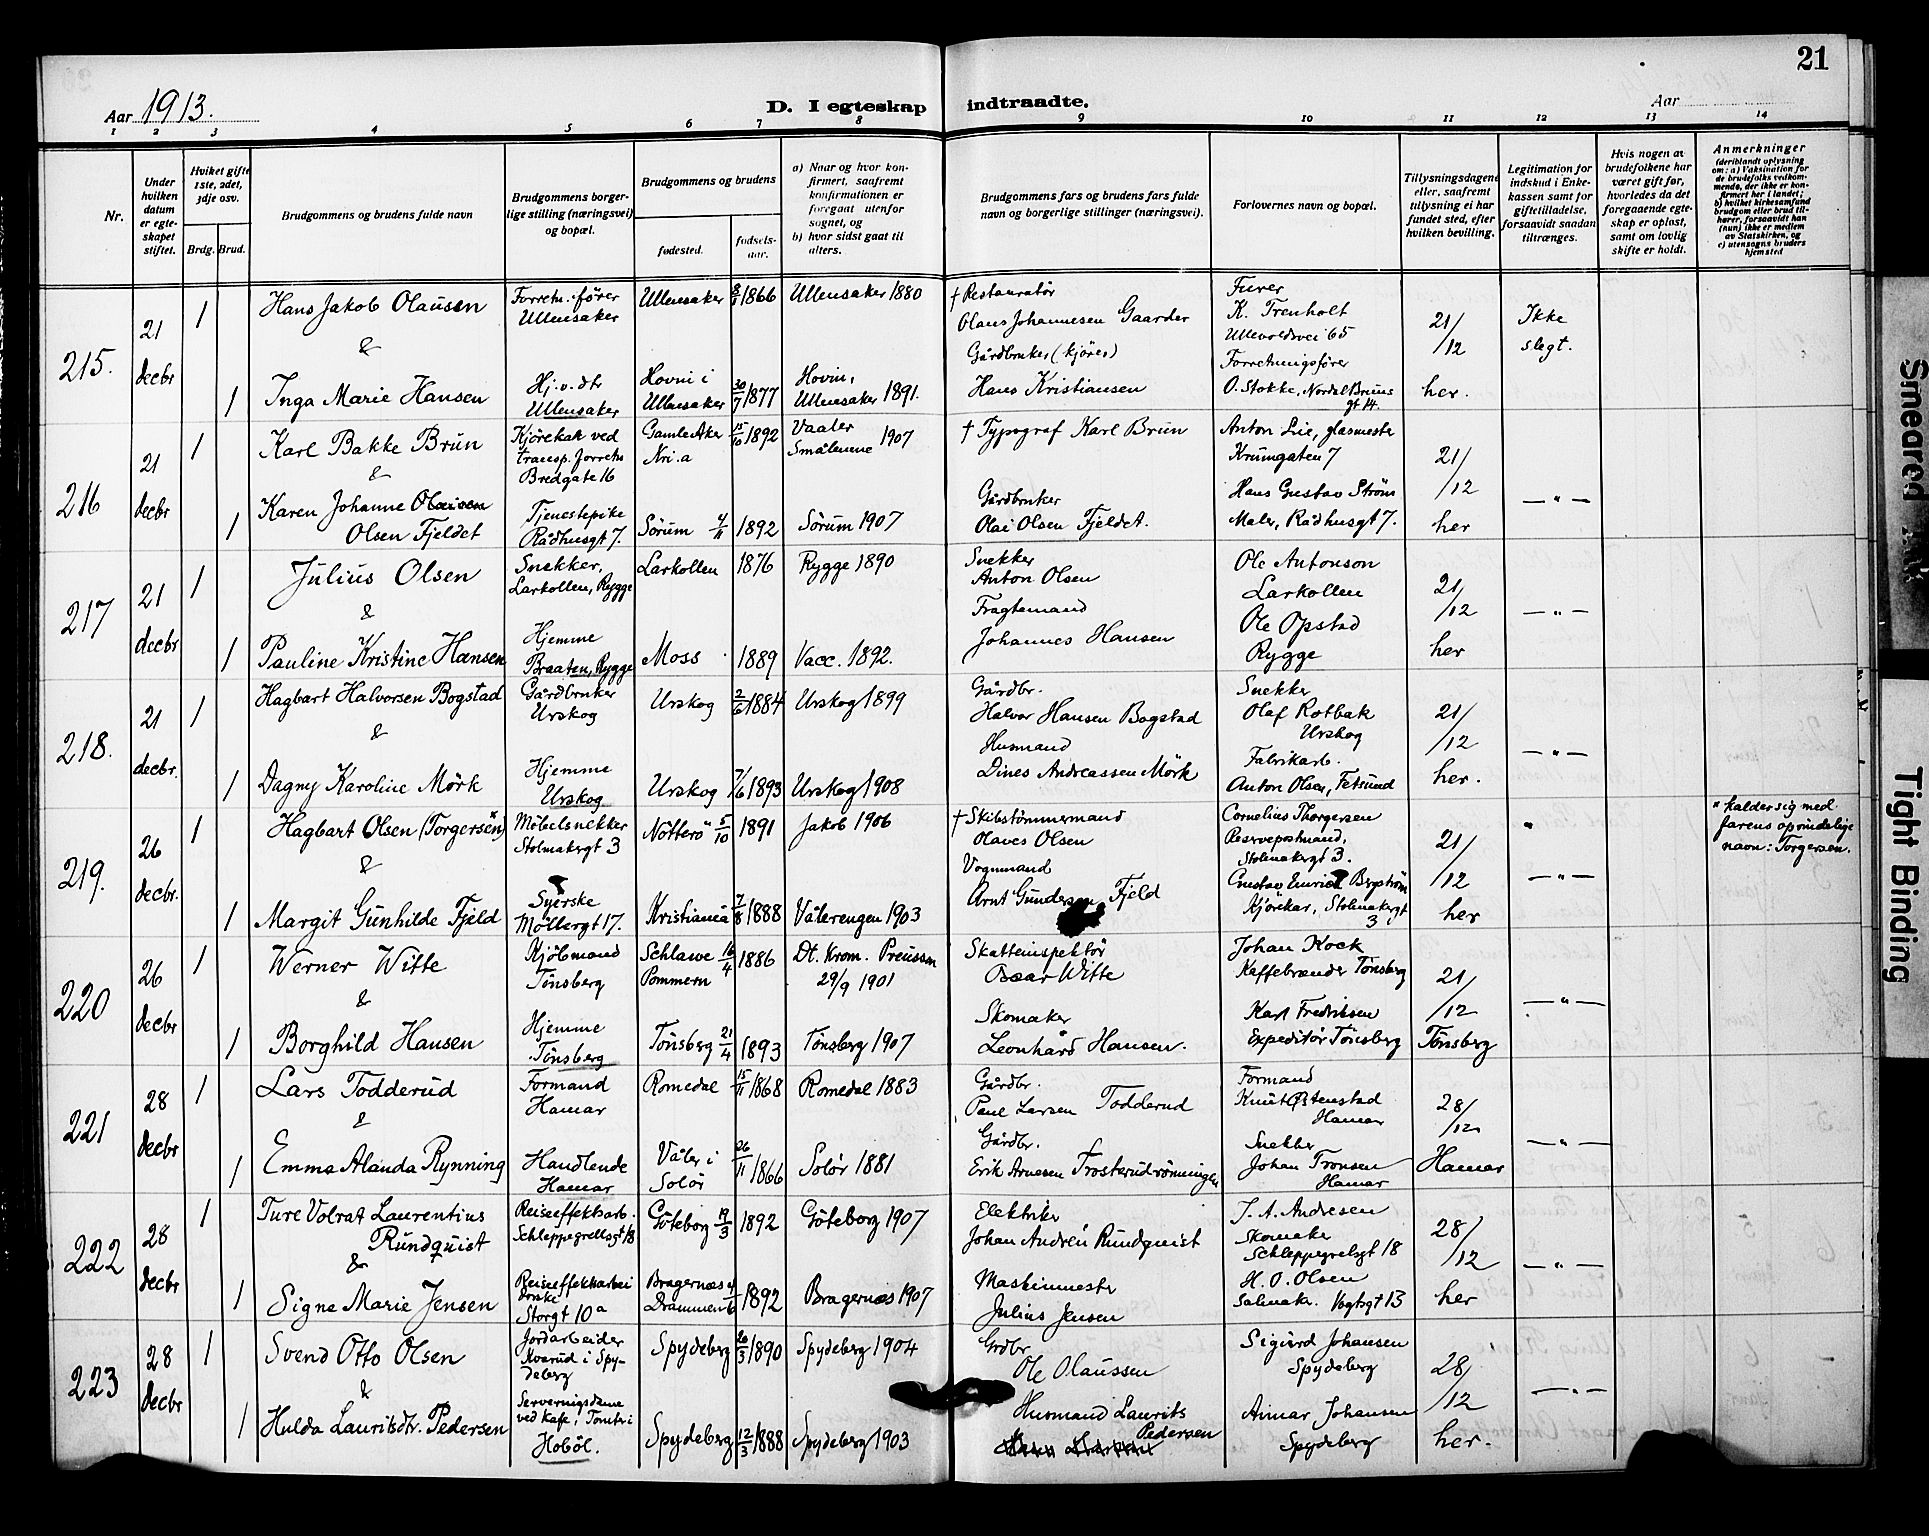 21
Aar 1913.
D. I egteskap indtraadte.
Aar
1 2 3 4 5 6 7 8 9 10 11 12 13 14
Nr.
Under hvilken datum er egteskapet stiftet.
Hvilket gifte 1ste, 2det, 3dje osv.
Brdg. Brud.
Brudgommens og brudens fulde navn
Brudgommens borgerlige stilling (næringsvei) og bopæl.
Brudgommens og brudens
fødested.
fødselsaar.
a) Naar og hvor konfirmert, saafremt konfirmationen er foregaat utenfor sognet, og
b) hvor sidst gaat til alters.
Brudgommens fars og brudens fars fulde navn og borgerlige stillinger (næringsvei).
Forlovernes navn og bopæl.
Tillysningsdagene eller, saafremt tillysning ei har fundet sted, efter hvilken bevilling.
Legitimation for indskud i Enkekassen samt for giftetilladelse, forsaavidt saadan tiltrænges.
Hvis nogen av brudefolkene har været gift før, hvorledes da det foregaaende egteskap er opløst, samt om lovlig skifte er holdt.
Anmerkninger
(deriblandt oplysning om: a) Vaksination for de brudefolks vedkommende, der ikke er konfirmert her i landet; b) hvilket kirkesamfund brudgom eller brud tilhører, forsaavidt han (hun) ikke er medlem av Statskirken, og c) utensogns bruders hjemsted
215. 21 decbr 1
Hans Jakob Olausen
&
Forretn.fører
Ullensaker
Ullensaker 8/1 1866
Ullensaker 1880
† Restauratør
Olaus Johannesen Gaarder
Furer
K. Trenholt
Ullevoldsvei 65
21/12
Ikke slegt.
1 Inga Marie Hansen
Hj.v.dtr
Ullensaker
Hovin i
Ullensaker 30/7 1877
Hovin,
Ullensaker 1891.
Gårdbruker (kjører)
Hans Kristiansen
Forretningsfører
O. Stokke, Nordal Bruns
gt 14.
her.
216 21 decbr 1
Karl Bakke Brun
&
Kjørekak ved
transp. forretn
Bredgate 16
Gamle Aker
Kri.a 15/10 1892
Vaaler
Smålenene 1907
† Typograf Karl Brun
Anton Lie, glasmester
Krumgaten 7
21/12
—"—
1 Karen Johanne Olaisen
Olsen Fjeldet
Tjenestepike
Rådhusgt 7.
Sørum 4/11 1892
Sørum 1907
Gårdbruker
Olai Olsen Fjeldet.
Hans Gustav Strøm
Maler, Rådhusgt 7.
her
217 21 decbr 1
Julius Olsen
&
Snekker,
Larkollen, Rygge
Larkollen 1876
Rygge 1890
Snekker
Anton Olsen
Ole Antonson
Larkollen
21/12
—"—
1 Pauline Kristine Hansen
Hjemme
Braaten, Rygge
Moss 1889
Vacc. 1892.
Fragtemand
Johannes Hansen
Ole Opstad
Rygge
her
218. 21 decbr. 1
Hagbart Halvorsen Bogstad
&
Gårdbruker
Urskog
Urskog 2/6 1884
Urskog 1899
Gårdbr.
Halvor Hansen Bogstad
Snekker
Olaf Rotbak
Urskog
21/12
—"—
1 Dagny Karoline Mörk
Hjemme
Urskog
Urskog 7/6 1893
Urskog 1908
Husmand
Dines Andreassen Mörk
Fabrikarb.
Anton Olsen, Fetsund
her.
219. 26 decbr. 1
Hagbart Olsen (Torgersen)
&
Möbelsnekker
Stolmakergt 3
Nötterö 5/10 1891
Jakob 1906
† Skibstömmermand
Olaves Olsen
Cornelius Thorgersen
Reservepostmand,
Stolmakergt 3.
21/12
—"—
" kalder sig med
farens oprindelige
navn: Torgersen.
1 Margit Gunhilde Fjeld
Syerske
Möllergt 17.
Kristiania 7/8 1888
Vålerengen 1903
Vognmand
Arnt Gundersen Fjeld
Gustav Bergström
Kjørekar, Stolmakergt
3
her
220 26 decbr 1
Werner Witte
&
Kjöbmand
Tönsberg
Schlawe
Pommern 16/4 1886
Dt. Krom. Preussen
29/9 1901
Skatteinspektör
Oscar Witte
Johan Kock
Kaffebrænder Tönsberg
21/12
—"—
1 Borghild Hansen
Hjemme
Tönsberg
Tönsberg 21/4 1893
Tönsberg 1907
Skomaker
Leonhard Hansen.
Karl Fredriksen
Expeditör Tönsberg
Tönsberg
221 28 decbr 1
Lars Todderud
&
Formand
Hamar
Romedal 15/11 1868
Romedal 1883
Gårdbr.
Paul Larsen Todderud
Formand
Knut Østenstad
Hamar
28/12
—"—
1 Emma Alanda Rynning
Handlende
Hamar
Våler i
Solör 26/11 1866
Solör 1881
Gårdbr.
Erik Arnesen Trosterudrönningen
Snekker
Johan Tronsen
Hamar
Hamar
222 28 decbr 1
Ture Volrat Laurentius
Rundquist
&
Reiseeffektarb.
Schleppegrellsgt 18
Göteborg 19/3 1892
Göteborg 1907
Elektriker
Johan Andrén Rundquist
J. A. Andresen
Skomaker
Schleppegrelsgt 18
28/12
—"—
1 Signe Marie Jensen
Reiseeffektarbei
derske
Storgt 10a
Bragernæs
Drammen 4/6 1892
Bragernæs 1907
Maskinmester
Julius Jensen
H. O. Olsen
Salmakr. Vogtsgt 13
her
223 28 decbr 1
Svend Otto Olsen
&
Jordarbeider
Kvarud i Spy-
deberg
Spydeberg 20/3 1890
Spydeberg 1904
Grdbr
Ole Olaussen
Sigurd Johansen
Spydeberg
28/12
—"—
1 Hulda Lauritsdtr. Pedersen
Serveringsdame
ved kafe, Tomter i
Hobøl.
Spydeberg 12/3 1888
Spydeberg 1903
Husmand Laurits
Pedersen
Aimar Johansen
Spydeberg
her.
Smeared Ink
Tight Binding